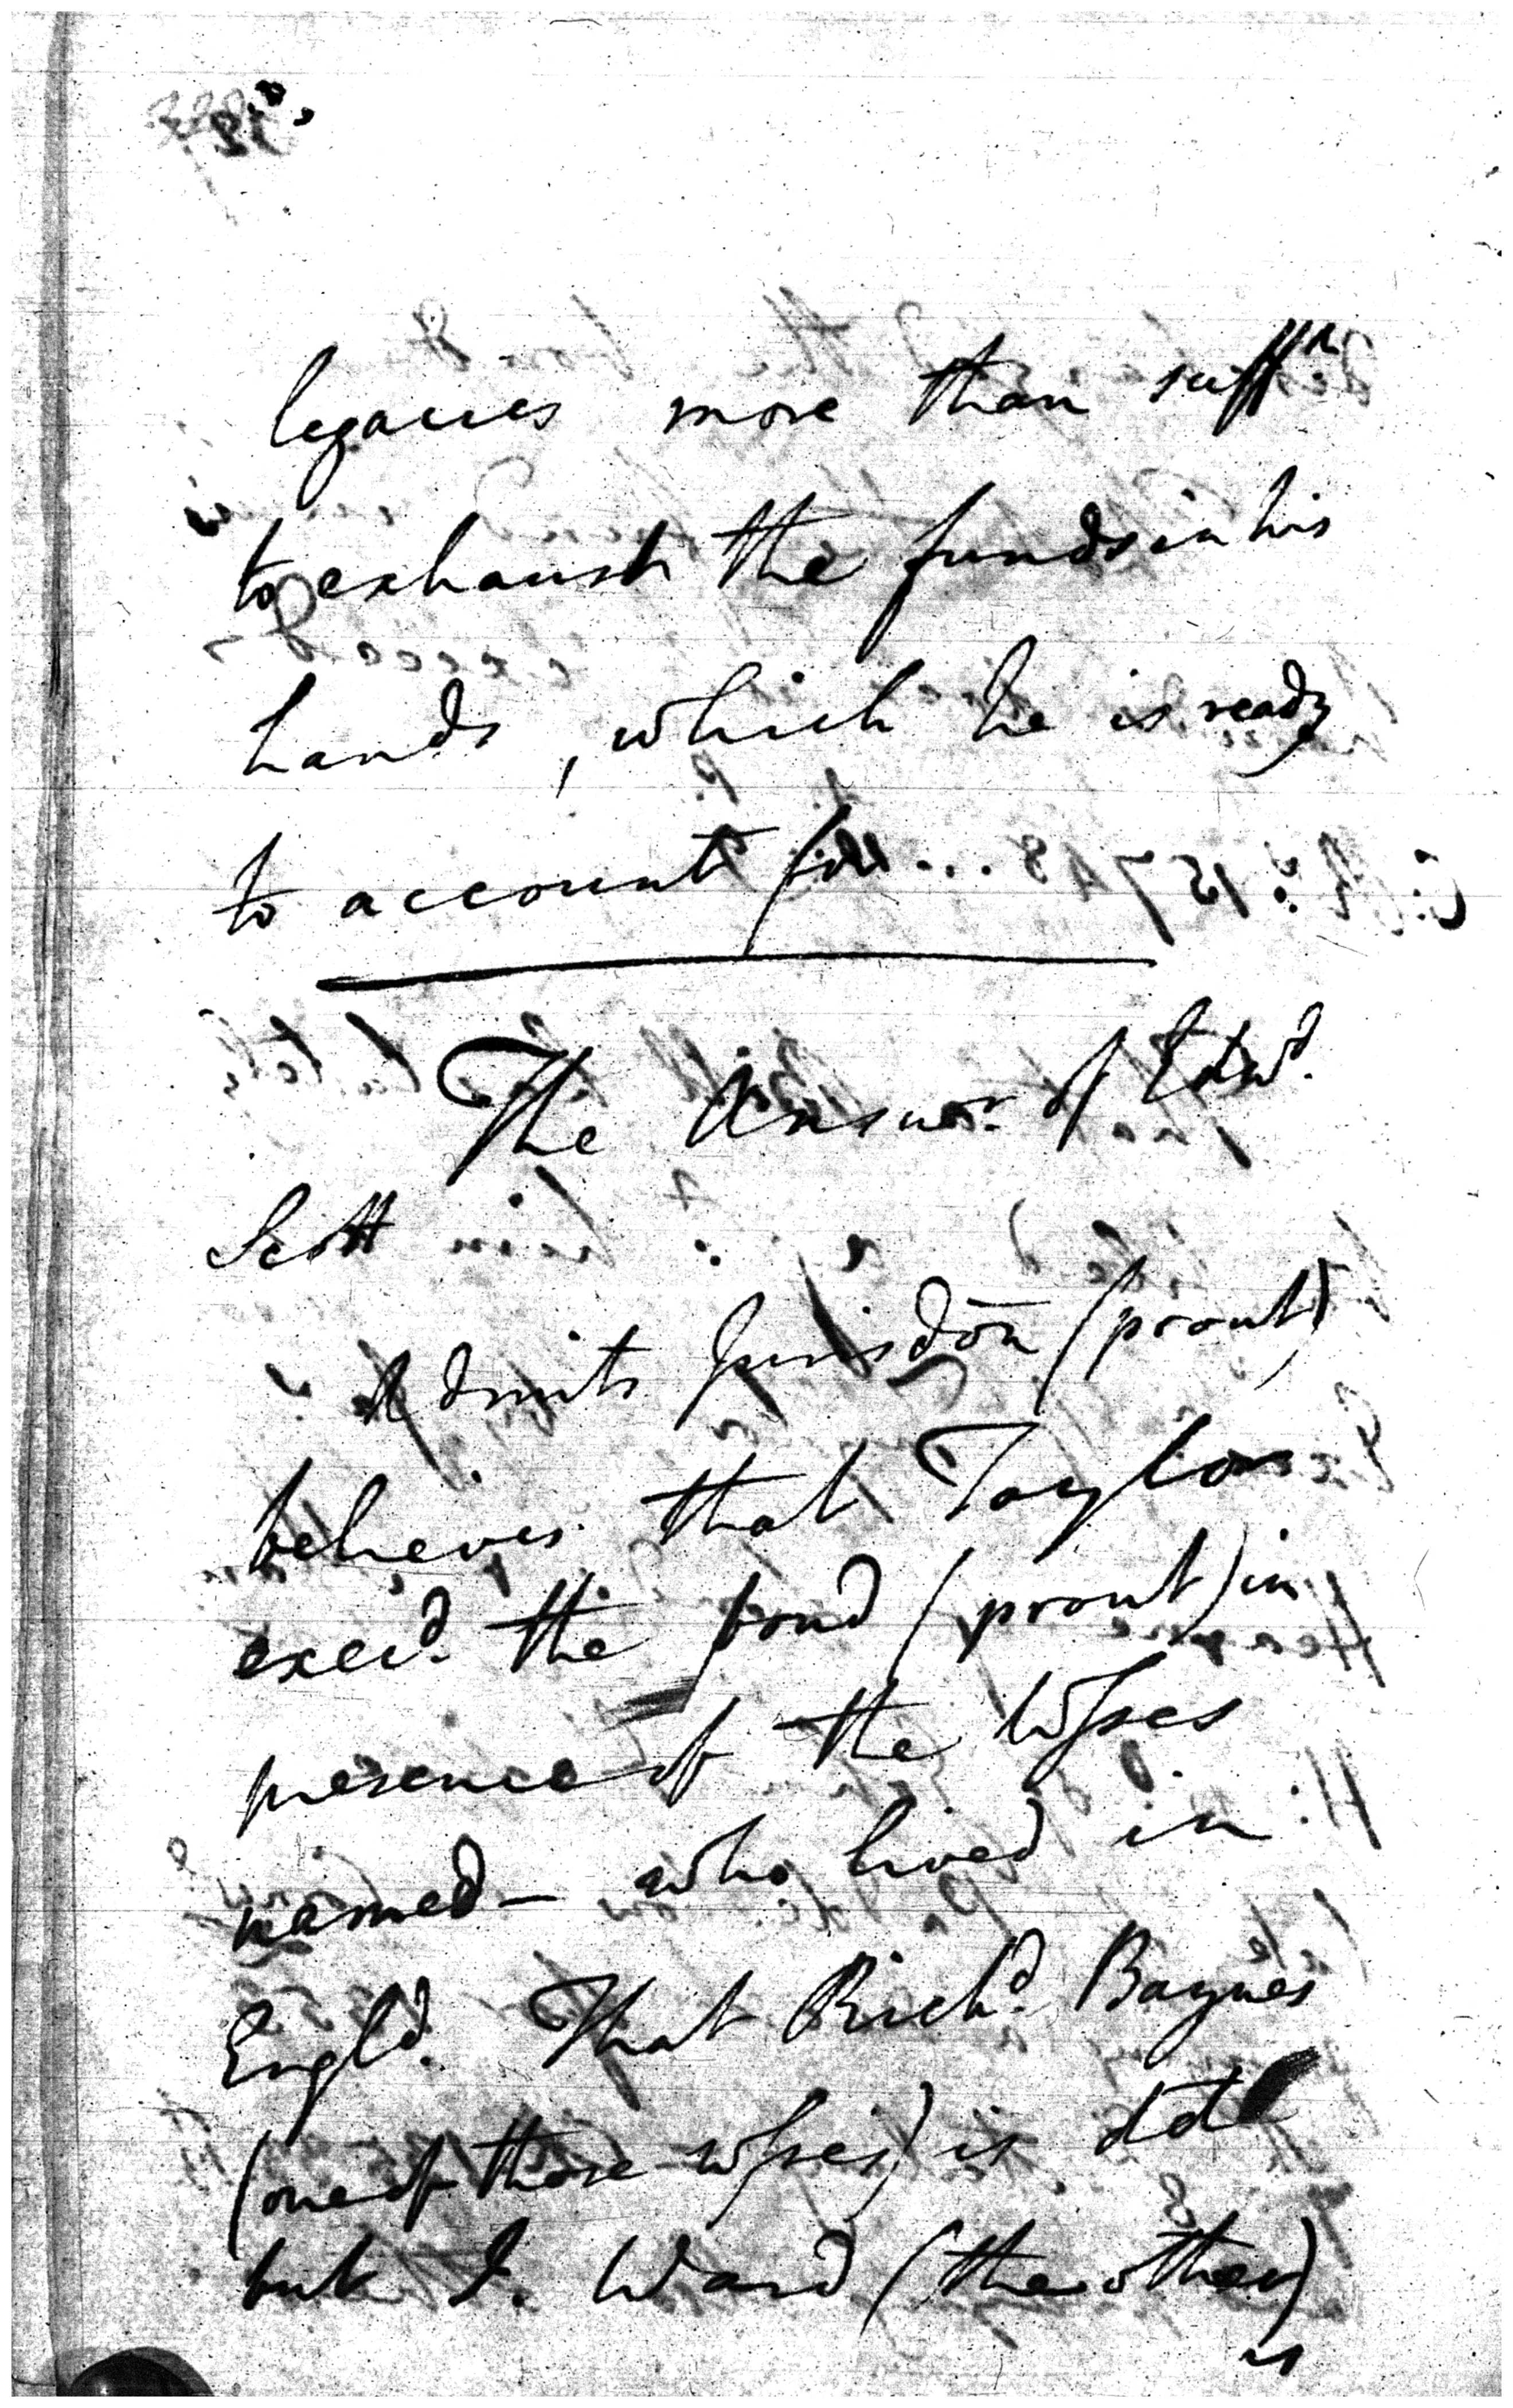 legacies more than suff^t.
to exhaust the funds in his
hands, which he is ready
to account for
The Answer of Edw^d.
Scott
Admits Jurisdōn (prout)
believes that Taylor
exec^d. the bond (prout) in
presence of the Wsses
named - who lived in
Engl^d. That Rich^d. Baynes
(one of those wsses) is dd
but I. Ward (the other)
is